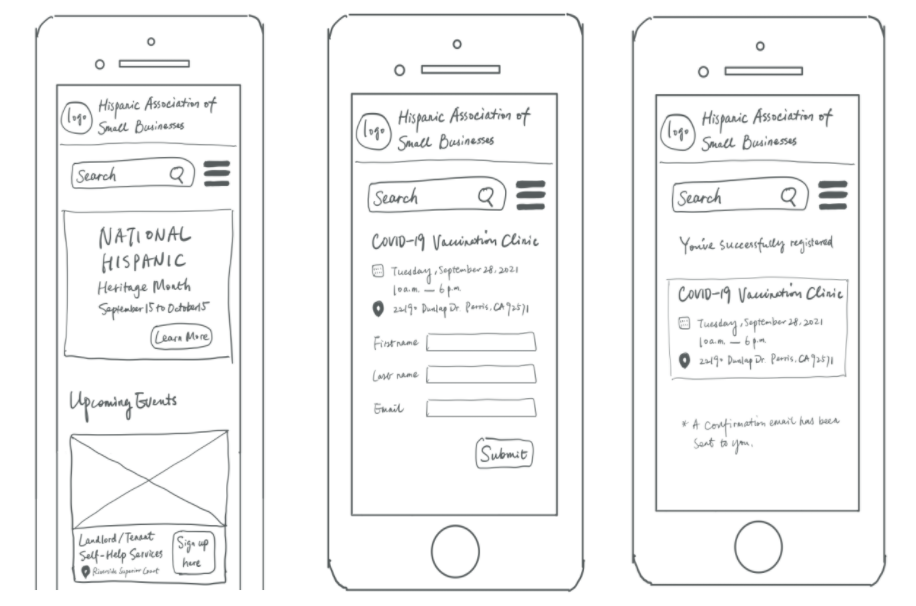 logo
Hispanic Association of
Small Businesses
Search
NATIONAL
HISPANIC
Heritage Month
September 15 to October 15
Learn More
Upcoming Events
Landlord/Tenant
Self-Help Services
Riverside Superior Court
Sign up
here
logo
Hispanic Association of
Small Businesses
Search
COVID-19 Vaccination Clinic
Tuesday, September 28, 2021
10 a.m. — 6 p.m.
22190 Dunlap Dr. Perris, CA 92571
First name
Last name
Email
Submit
logo
Hispanic Association of
Small Businesses
Search
You've successfully registered
COVID-19 Vaccination Clinic
Tuesday, September 28, 2021
10 a.m. — 6 p.m.
22190 Dunlap Dr. Perris, CA 92571
* A confirmation email has been
sent to you.